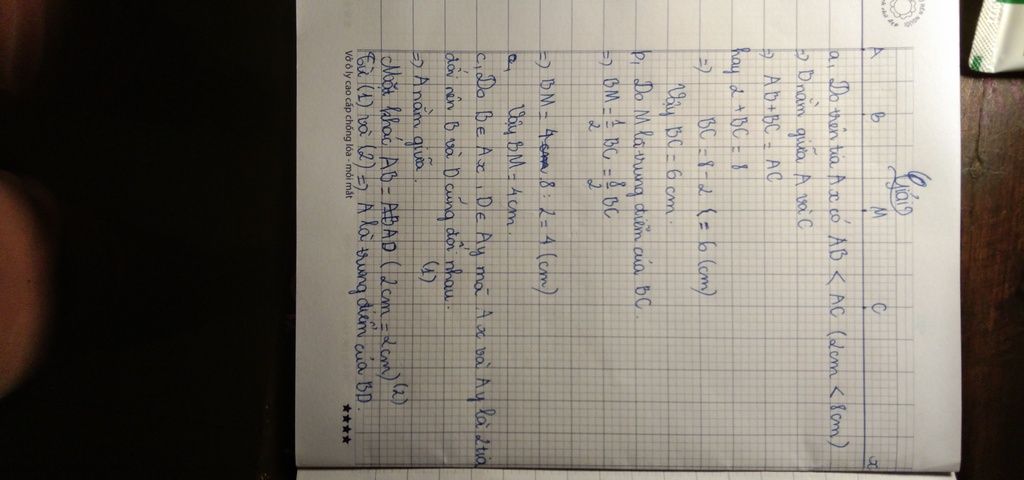 Giải
A B M C x
a, Do trên tia Ax có AB < AC (2cm < 8cm)
=> B nằm giữa A và C
=> AB + BC = AC
hay 2 + BC = 8
=> BC = 8 - 2 ( = 6 (cm)
Vậy BC = 6 cm.
b, Do M là trung điểm của BC.
=> BM = 1/2 BC = 8/2 BC
=> BM = 8 : 2 = 4 (cm)
Vậy BM = 4 cm.
c, Do B ∈ Ax, D ∈ Ay mà Ax và Ay là 2 tia
đối nên B và D cùng đối nhau.
=> A nằm giữa. (1)
Mặt khác, AB = AD (2cm = 2cm) (2)
Từ (1) và (2) => A là trung điểm của BD.
Vở ô ly cao cấp chống lóa - mỏi mắt ★★★★